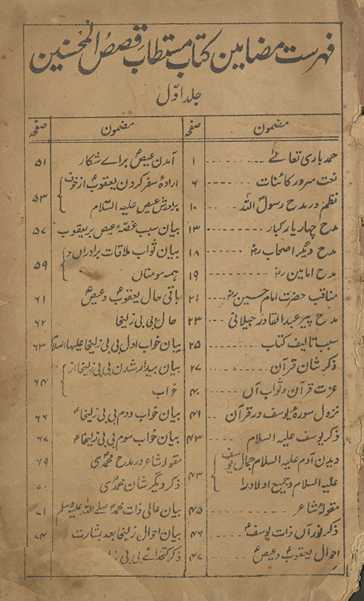 فہرست مضامین کتاب مستطاب قصص المحسنین
جلد اوّل
مضمون صفحہ
حمد باری تعالےٰ ۱
نعت سرور کائنات ۶
نظم در مدح رسول اللہ ۱۰
مدح چہار یار کبار ۱۳
مدح دیگر اصحاب رضہ ۱۸
مدح امامین رضہ ۱۹
مناقب حضرت امام حسین ۲۱
مدح پیر عبد القادر جیلانی ۲۳
سبب تالیف کتاب ۲۵
ذکر شان قرآن ۲۷
عزت قرآن و ثواب آں ۴۰
نزول سورۂ یوسف در قرآن ۴۱
ذکر یوسف علیہ السلام ۴۳
دیدن آدم علیہ السلام جمال یوسف
علیہ السلام و جمیع اولاد را ۴۳
مقولہ شاعر ۴۵
ذکر نور آں ذات یوسف ۴۶
احوال یعقوب و عیص ۴۷
مضمون صفحہ
آمدن عیص براے شکار ۵۱
ارادہ سفر کردن یعقوب از خوف
برادرش عیص علیہ السلام ۵۳
بیان سبب غصہ عیص بر یعقوب ۵۷
بیان ثواب ملاقات برادراں و
ہمہ مومناں ۵۹
باقی حال یعقوب و عیص ۶۱
حال بی بی زلیخا ۶۲
بیان خواب اول بی بی زلیخا علیہا السلام ۶۳
بیان بیدار شدن بی بی از
خواب ۶۴
بیان خواب دوم بی بی زلیخا ۶۶
بیان خواب سوم بی بی زلیخا ۶۷
مقولہ شاعر در مدح محمدی ۶۹
ذکر دیگر شان محمدی ۷۰
بیان عالی ذات محمد صلے اللہ علیہ وسلم ۷۱
بیان احوال زلیخا بعد بشارت ۷۴
ذکر کتخدائے بی بی